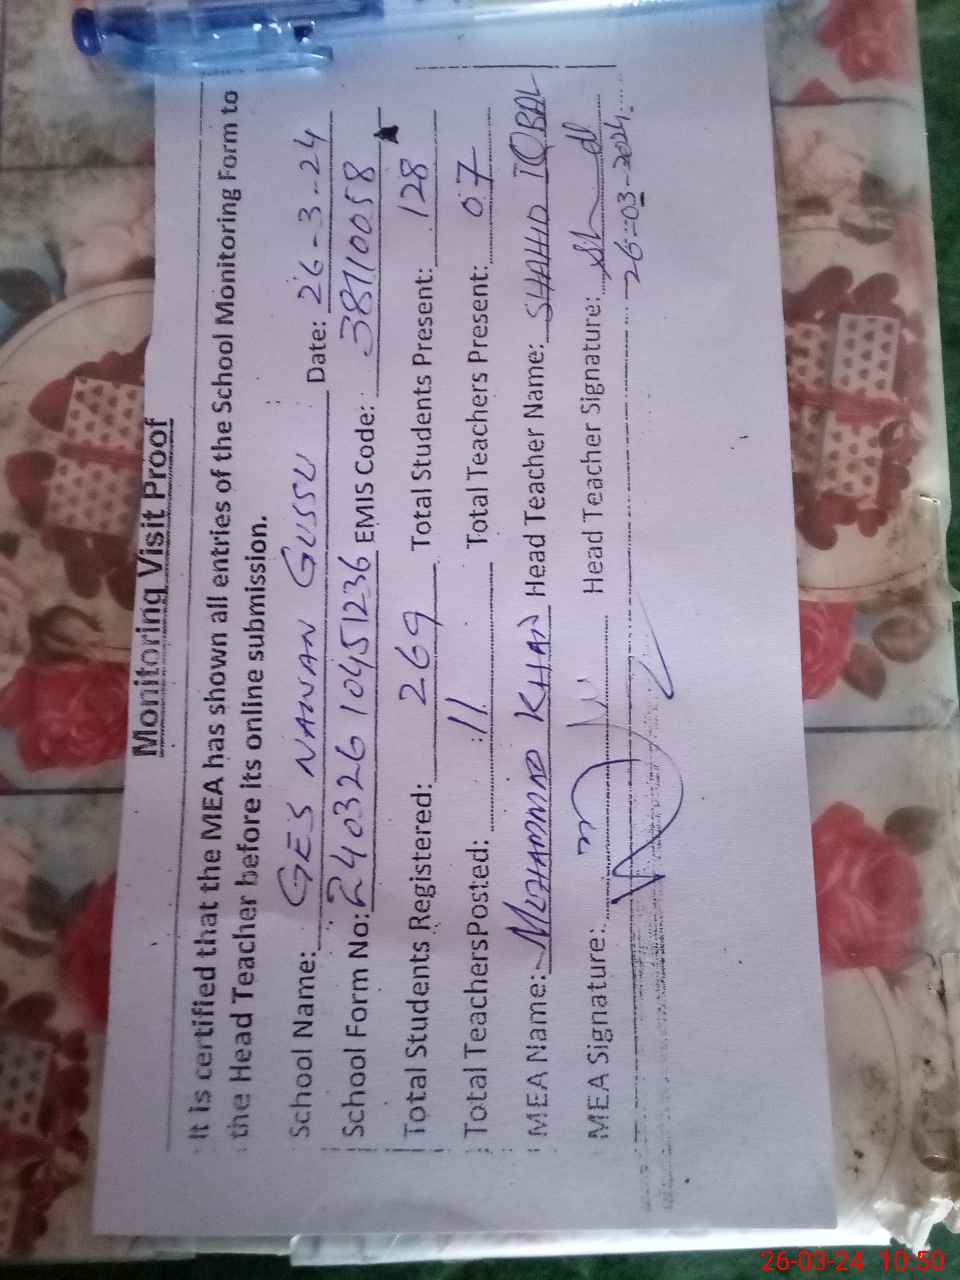 Monitoring Visit Proof
It is certified that the MEA has shown all entries of the School Monitoring Form to
the Head Teacher before its online submission.
School Name: GES NANAN GUSSU Date: 26-3-24
School Form No: 240326 10451236 EMIS Code: 38110058
Total Students Registered: 269 Total Students Present: 128
Total TeachersPosted: 11 Total Teachers Present: 07
MEA Name: MUHAMMAD KHAN Head Teacher Name: SHAHID IQBAL
MEA Signature: Head Teacher Signature:
26-03-2024
26-03-24 10:50